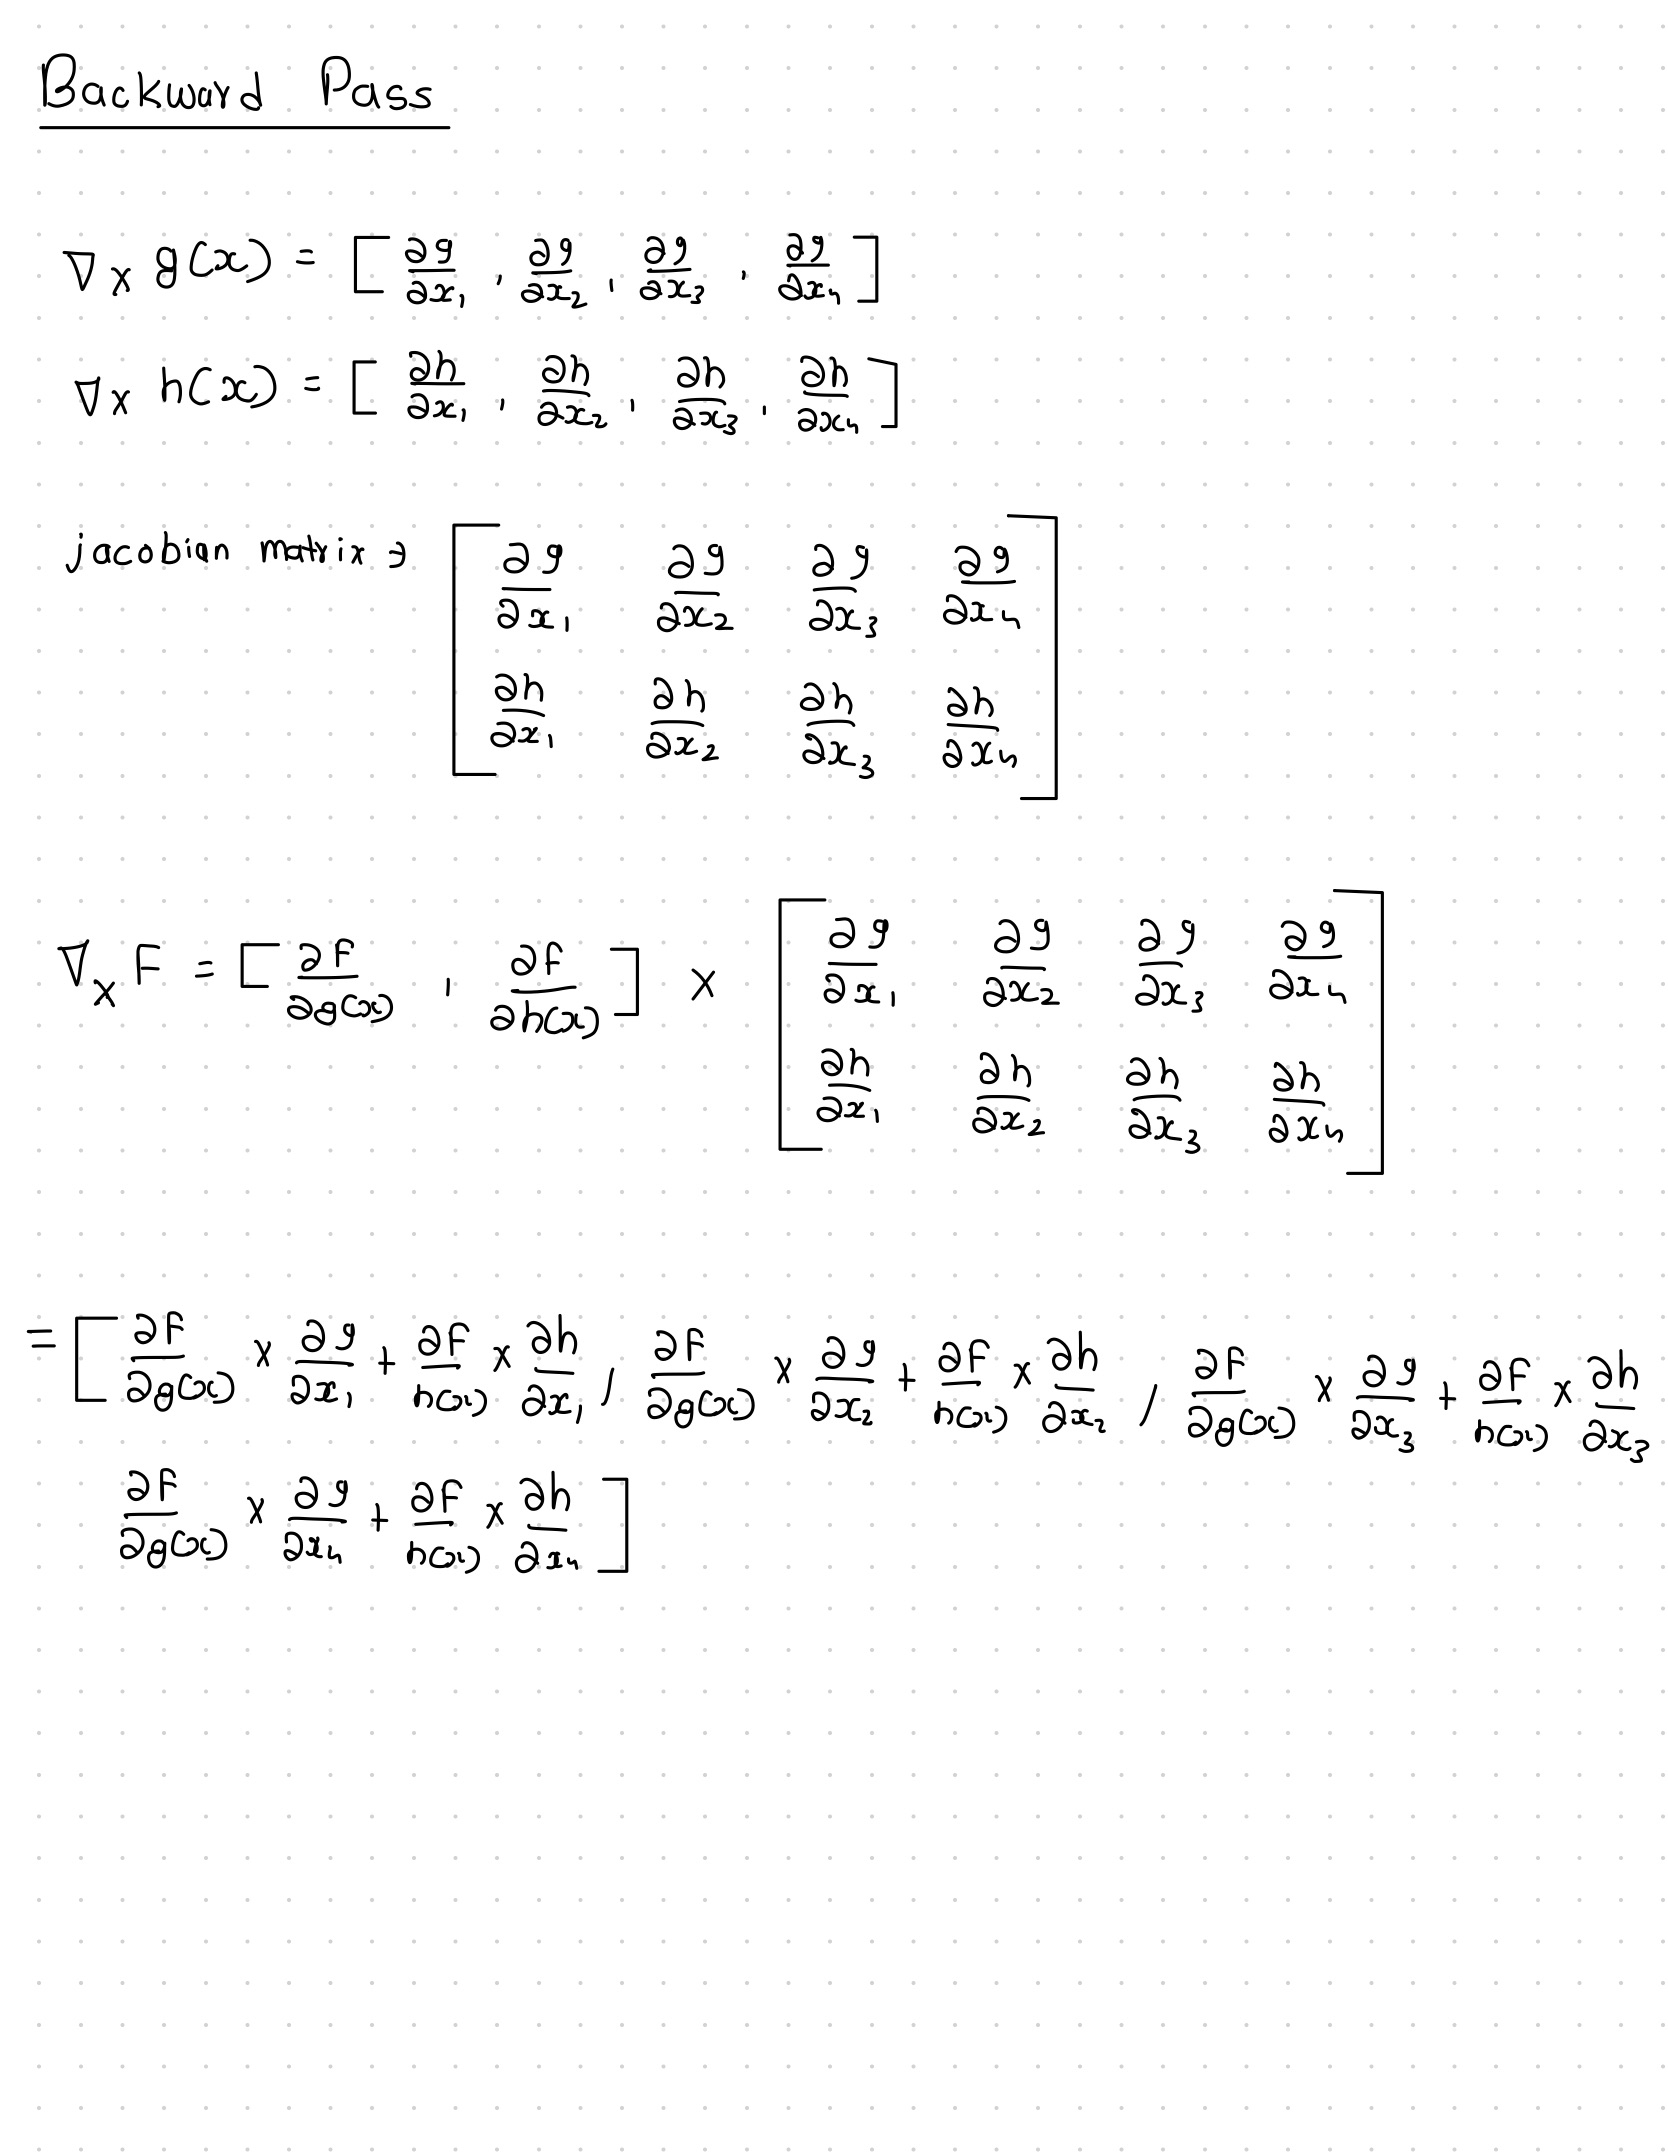 Backward Pass
∇x g(x) = [ ∂g/∂x₁ , ∂g/∂x₂ , ∂g/∂x₃ , ∂g/∂x₄ ]
∇x h(x) = [ ∂h/∂x₁ , ∂h/∂x₂ , ∂h/∂x₃ , ∂h/∂x₄ ]
jacobian matrix → [ ∂g/∂x₁ ∂g/∂x₂ ∂g/∂x₃ ∂g/∂x₄
∂h/∂x₁ ∂h/∂x₂ ∂h/∂x₃ ∂h/∂x₄ ]
∇x F = [ ∂F/∂g(x) , ∂f/∂h(x) ] × [ ∂g/∂x₁ ∂g/∂x₂ ∂g/∂x₃ ∂g/∂x₄
∂h/∂x₁ ∂h/∂x₂ ∂h/∂x₃ ∂h/∂x₄ ]
= [ ∂F/∂g(x) × ∂g/∂x₁ + ∂F/h(x) × ∂h/∂x₁ , ∂F/∂g(x) × ∂g/∂x₂ + ∂F/h(x) × ∂h/∂x₂ , ∂F/∂g(x) × ∂g/∂x₃ + ∂F/h(x) × ∂h/∂x₃
∂F/∂g(x) × ∂g/∂x₄ + ∂F/h(x) × ∂h/∂x₄ ]